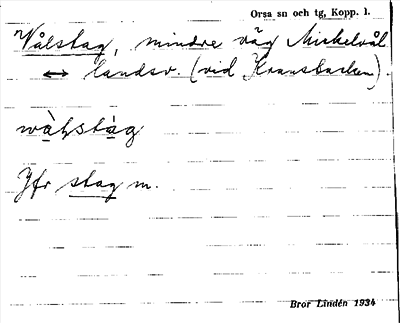 Orsa sn och tg, Kopp. l.
Vålstag, mindre väg Mickelvål
↔ landsv. (vid Kransbacken).
wàḷstàg
Jfr stag m.
Bror Lindén 1934